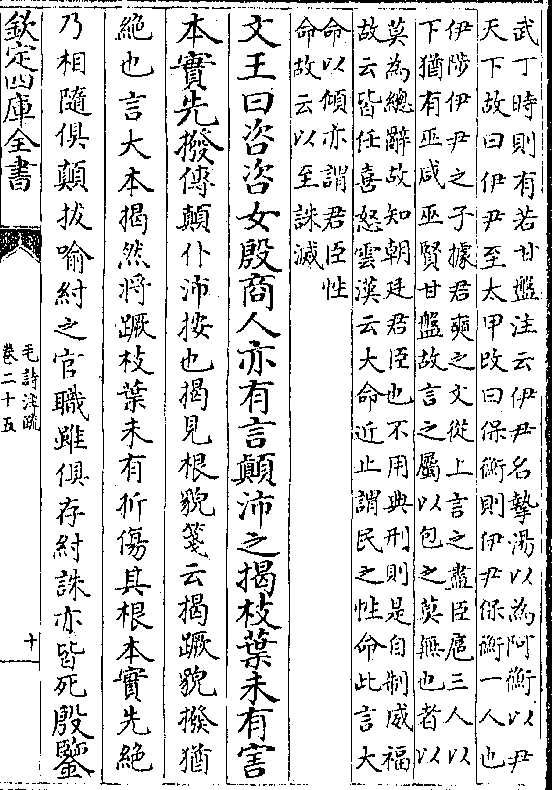 武丁時則有若甘盤注云伊尹名摯湯以為阿衡以尹
天下故曰伊尹至太甲改曰保衡則伊尹保衡一人也
伊陟伊尹之子據君奭之文從上言之盡臣扈三人以
下猶有巫咸巫賢甘盤故言之屬以包之莫無也者以
莫為總辭故知朝廷君臣也不用典刑則是自制威福
故云皆任喜怒雲漢云大命近止謂民之性命此言大
命以傾亦謂君臣性
命故云以至誅滅
文王曰咨咨女殷商人亦有言顛沛之揭枝葉未有害
本實先撥傳顛仆沛按也揭見根貌箋云揭蹶貌撥猶
絶也言大本揭然將蹶枝葉未有折傷其根本實先絶
乃相隨俱顛拔喻紂之官職雖俱存紂誅亦皆死殷鑒
欽定四庫全書
毛詩注疏
卷二十五
十